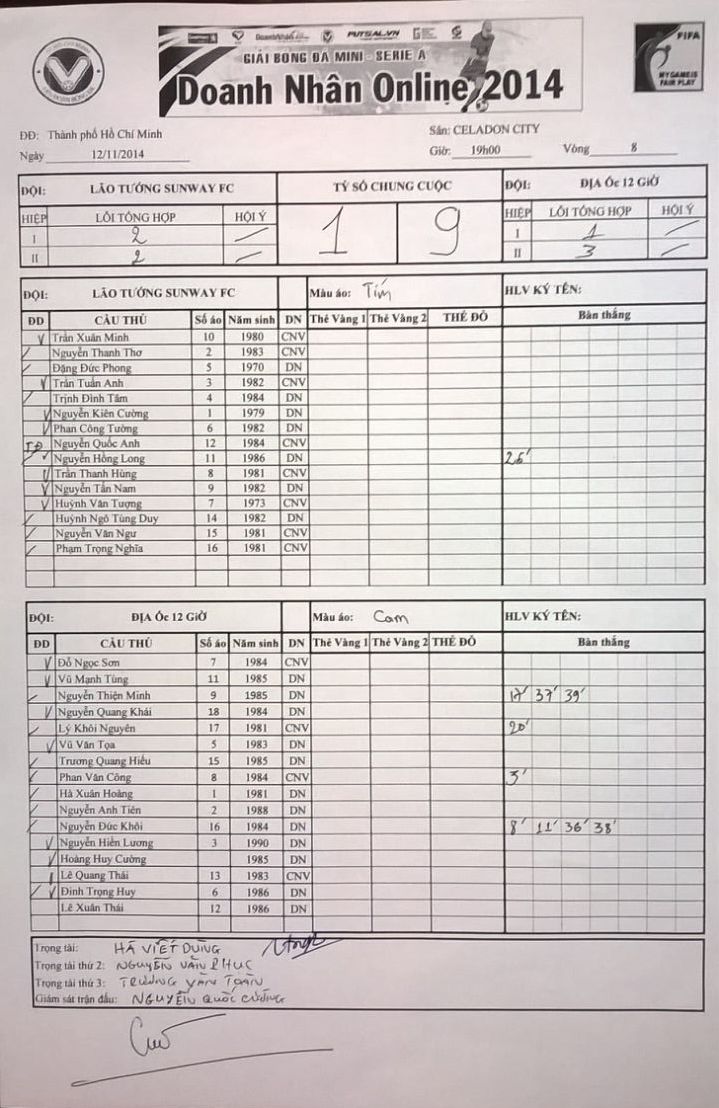 FUTSAL.VN
FIFA
MY GAME IS
FAIR PLAY
GIẢI BÓNG ĐÁ MINI - SERIE A
Doanh Nhân Online 2014
ĐĐ: Thành phố Hồ Chí Minh
Sân: CELADON CITY
Ngày 12/11/2014 Giờ: 19h00 Vòng 8
ĐỘI: LÃO TƯỚNG SUNWAY FC TỶ SỐ CHUNG CUỘC ĐỘI: ĐỊA ỐC 12 GIỜ
HIỆP LỖI TỔNG HỢP HỘI Ý 1 9 HIỆP LỖI TỔNG HỢP HỘI Ý
I 2 / I 1 /
II 2 / II 3 /
ĐỘI: LÃO TƯỚNG SUNWAY FC Màu áo: Tím HLV KÝ TÊN:
ĐD CẦU THỦ Số áo Năm sinh DN Thẻ Vàng 1 Thẻ Vàng 2 THẺ ĐỎ Bàn thắng
Trần Xuân Minh 10 1980 CNV
Nguyễn Thanh Thơ 2 1983 CNV
Đặng Đức Phong 5 1970 DN
Trần Tuấn Anh 3 1982 CNV
Trịnh Đình Tâm 4 1984 DN
Nguyễn Kiên Cường 1 1979 DN
Phan Công Tường 6 1982 DN
TĐ Nguyễn Quốc Anh 12 1984 CNV
Nguyễn Hồng Long 11 1986 DN 26'
Trần Thanh Hùng 8 1981 CNV
Nguyễn Tấn Nam 9 1982 DN
Huỳnh Văn Tượng 7 1973 CNV
Huỳnh Ngô Tùng Duy 14 1982 DN
Nguyễn Văn Ngư 15 1981 CNV
Phạm Trọng Nghĩa 16 1981 CNV
ĐỘI: ĐỊA ỐC 12 GIỜ Màu áo: Cam HLV KÝ TÊN:
ĐD CẦU THỦ Số áo Năm sinh DN Thẻ Vàng 1 Thẻ Vàng 2 THẺ ĐỎ Bàn thắng
Đỗ Ngọc Sơn 7 1984 CNV
Vũ Mạnh Tùng 11 1985 DN
Nguyễn Thiện Minh 9 1985 DN 17' 37' 39'
Nguyễn Quang Khải 18 1984 DN
Lý Khôi Nguyên 17 1981 CNV 20'
Vũ Văn Tọa 5 1983 DN
Trương Quang Hiếu 15 1985 DN
Phan Văn Công 8 1984 CNV 3'
Hà Xuân Hoàng 1 1981 DN
Nguyễn Anh Tiên 2 1988 DN
Nguyễn Đức Khôi 16 1984 DN 8' 11' 36' 38'
Nguyễn Hiền Lương 3 1990 DN
Hoàng Huy Cường 1985 DN
Lê Quang Thái 13 1983 CNV
Đinh Trọng Huy 6 1986 DN
Lê Xuân Thái 12 1986 DN
Trọng tài: HÀ VIẾT DŨNG
Trọng tài thứ 2: NGUYỄN VĂN PHUC
Trọng tài thứ 3: TRƯƠNG VĂN TOÀN
Giám sát trận đấu: NGUYỄN QUỐC CƯỜNG